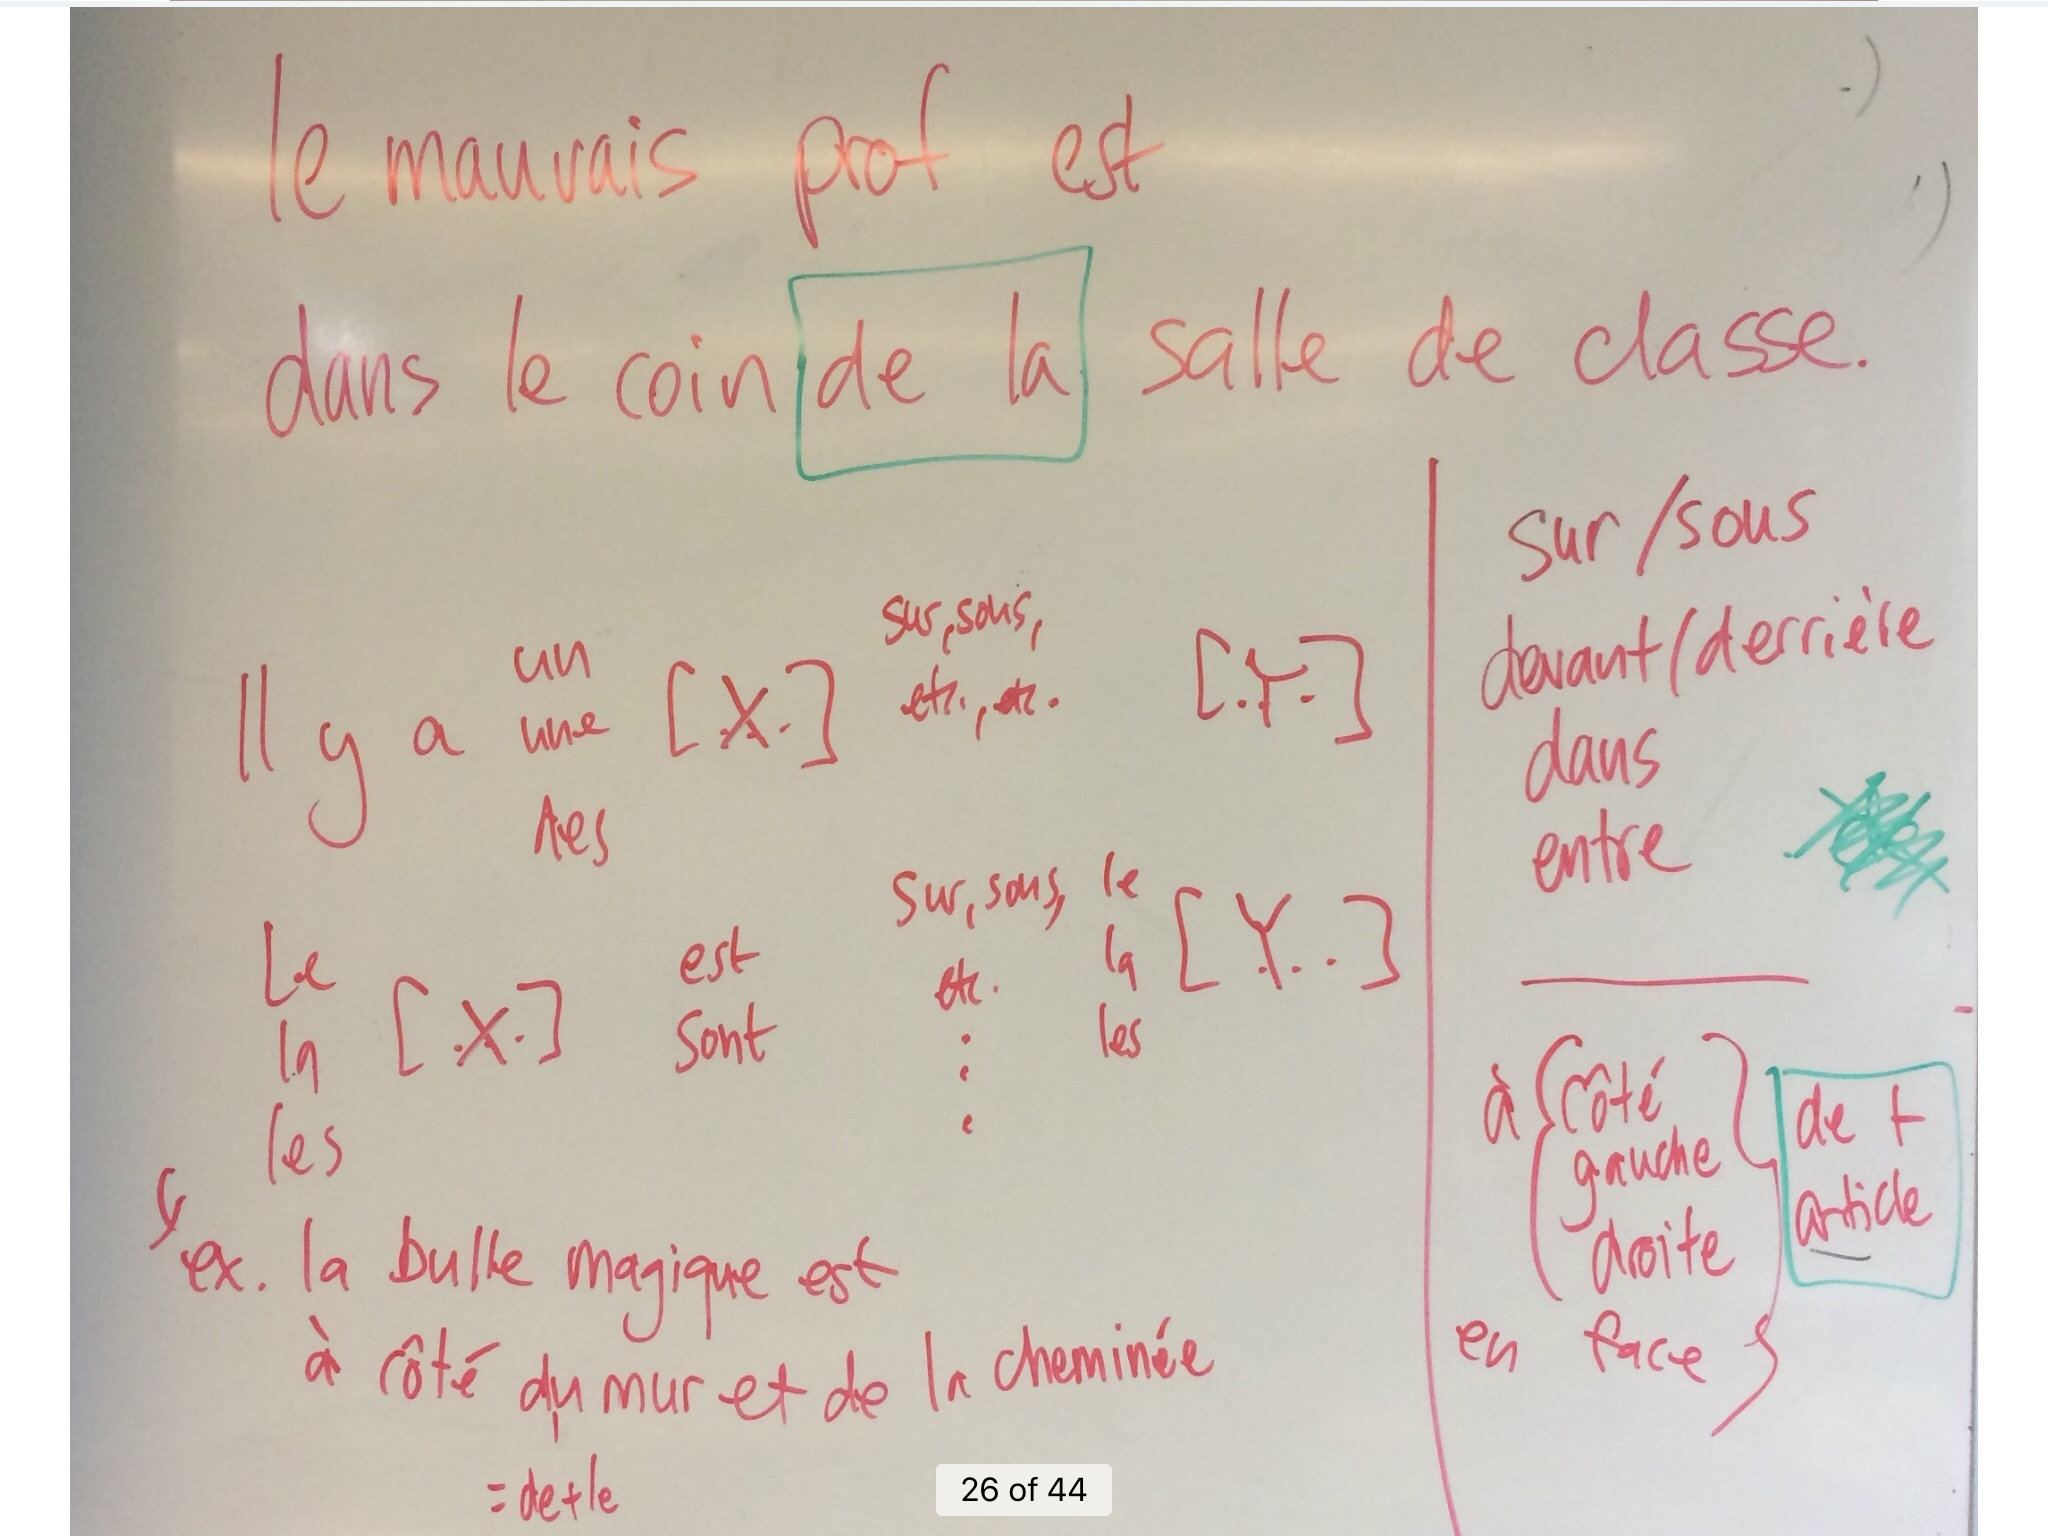 le mauvais prof est
dans le coin de la salle de classe.
Il y a un
une
des [.X.] sur, sous,
etc., etc. [.Y.]
Le
la
les [.X.] est
sont sur, sous,
etc. le
la
les [Y..]
ex. la bulle magique est
à côté du mur et de la cheminée
= de + le
sur/sous
devant/derrière
dans
entre
à côté
gauche
droite
en face
de +
article
26 of 44